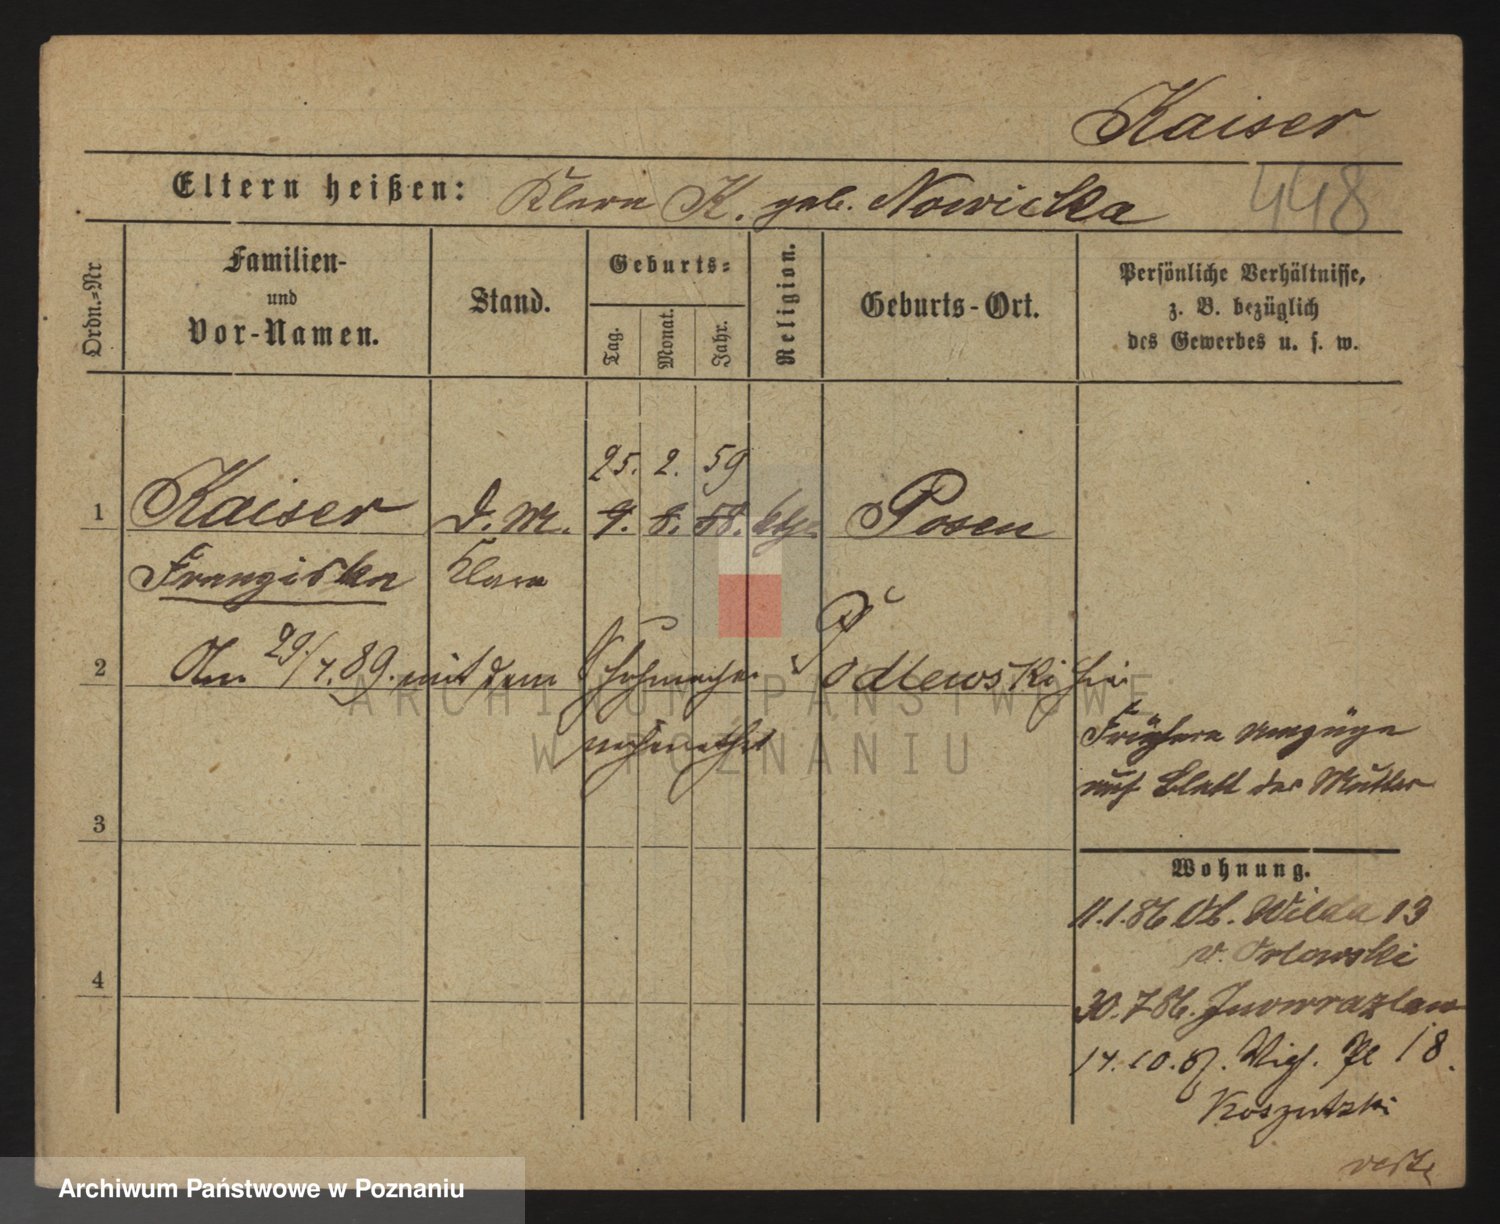 Kaiser
Eltern heißen: Klara K. geb. Nowicka
448
Ordn.=Nr.
Familien-
und
Vor-Namen.
Stand.
Geburts=
Tag.
Monat.
Jahr.
Religion.
Geburts-Ort.
Persönliche Verhältnisse,
z. B. bezüglich
des Gewerbes u. s. w.
25. 2. 59
1 Kaiser D. M. 9. 8. 58. kth. Posen
Franziska Klara
2 Am 29/7. 89. mit dem Schuhmacher Podlewski hier
verheirathet
Frühere Umzüge
auf Blatt der Mutter
3
Wohnung.
11.1.86 Ob. Wilda 13
v. Orlowski
4
30.7 86. Inowrazlaw
14.10.87. Pl 18.
Koszutzki
ARCHIWUM PAŃSTWOWE
W POZNANIU
Archiwum Państwowe w Poznaniu